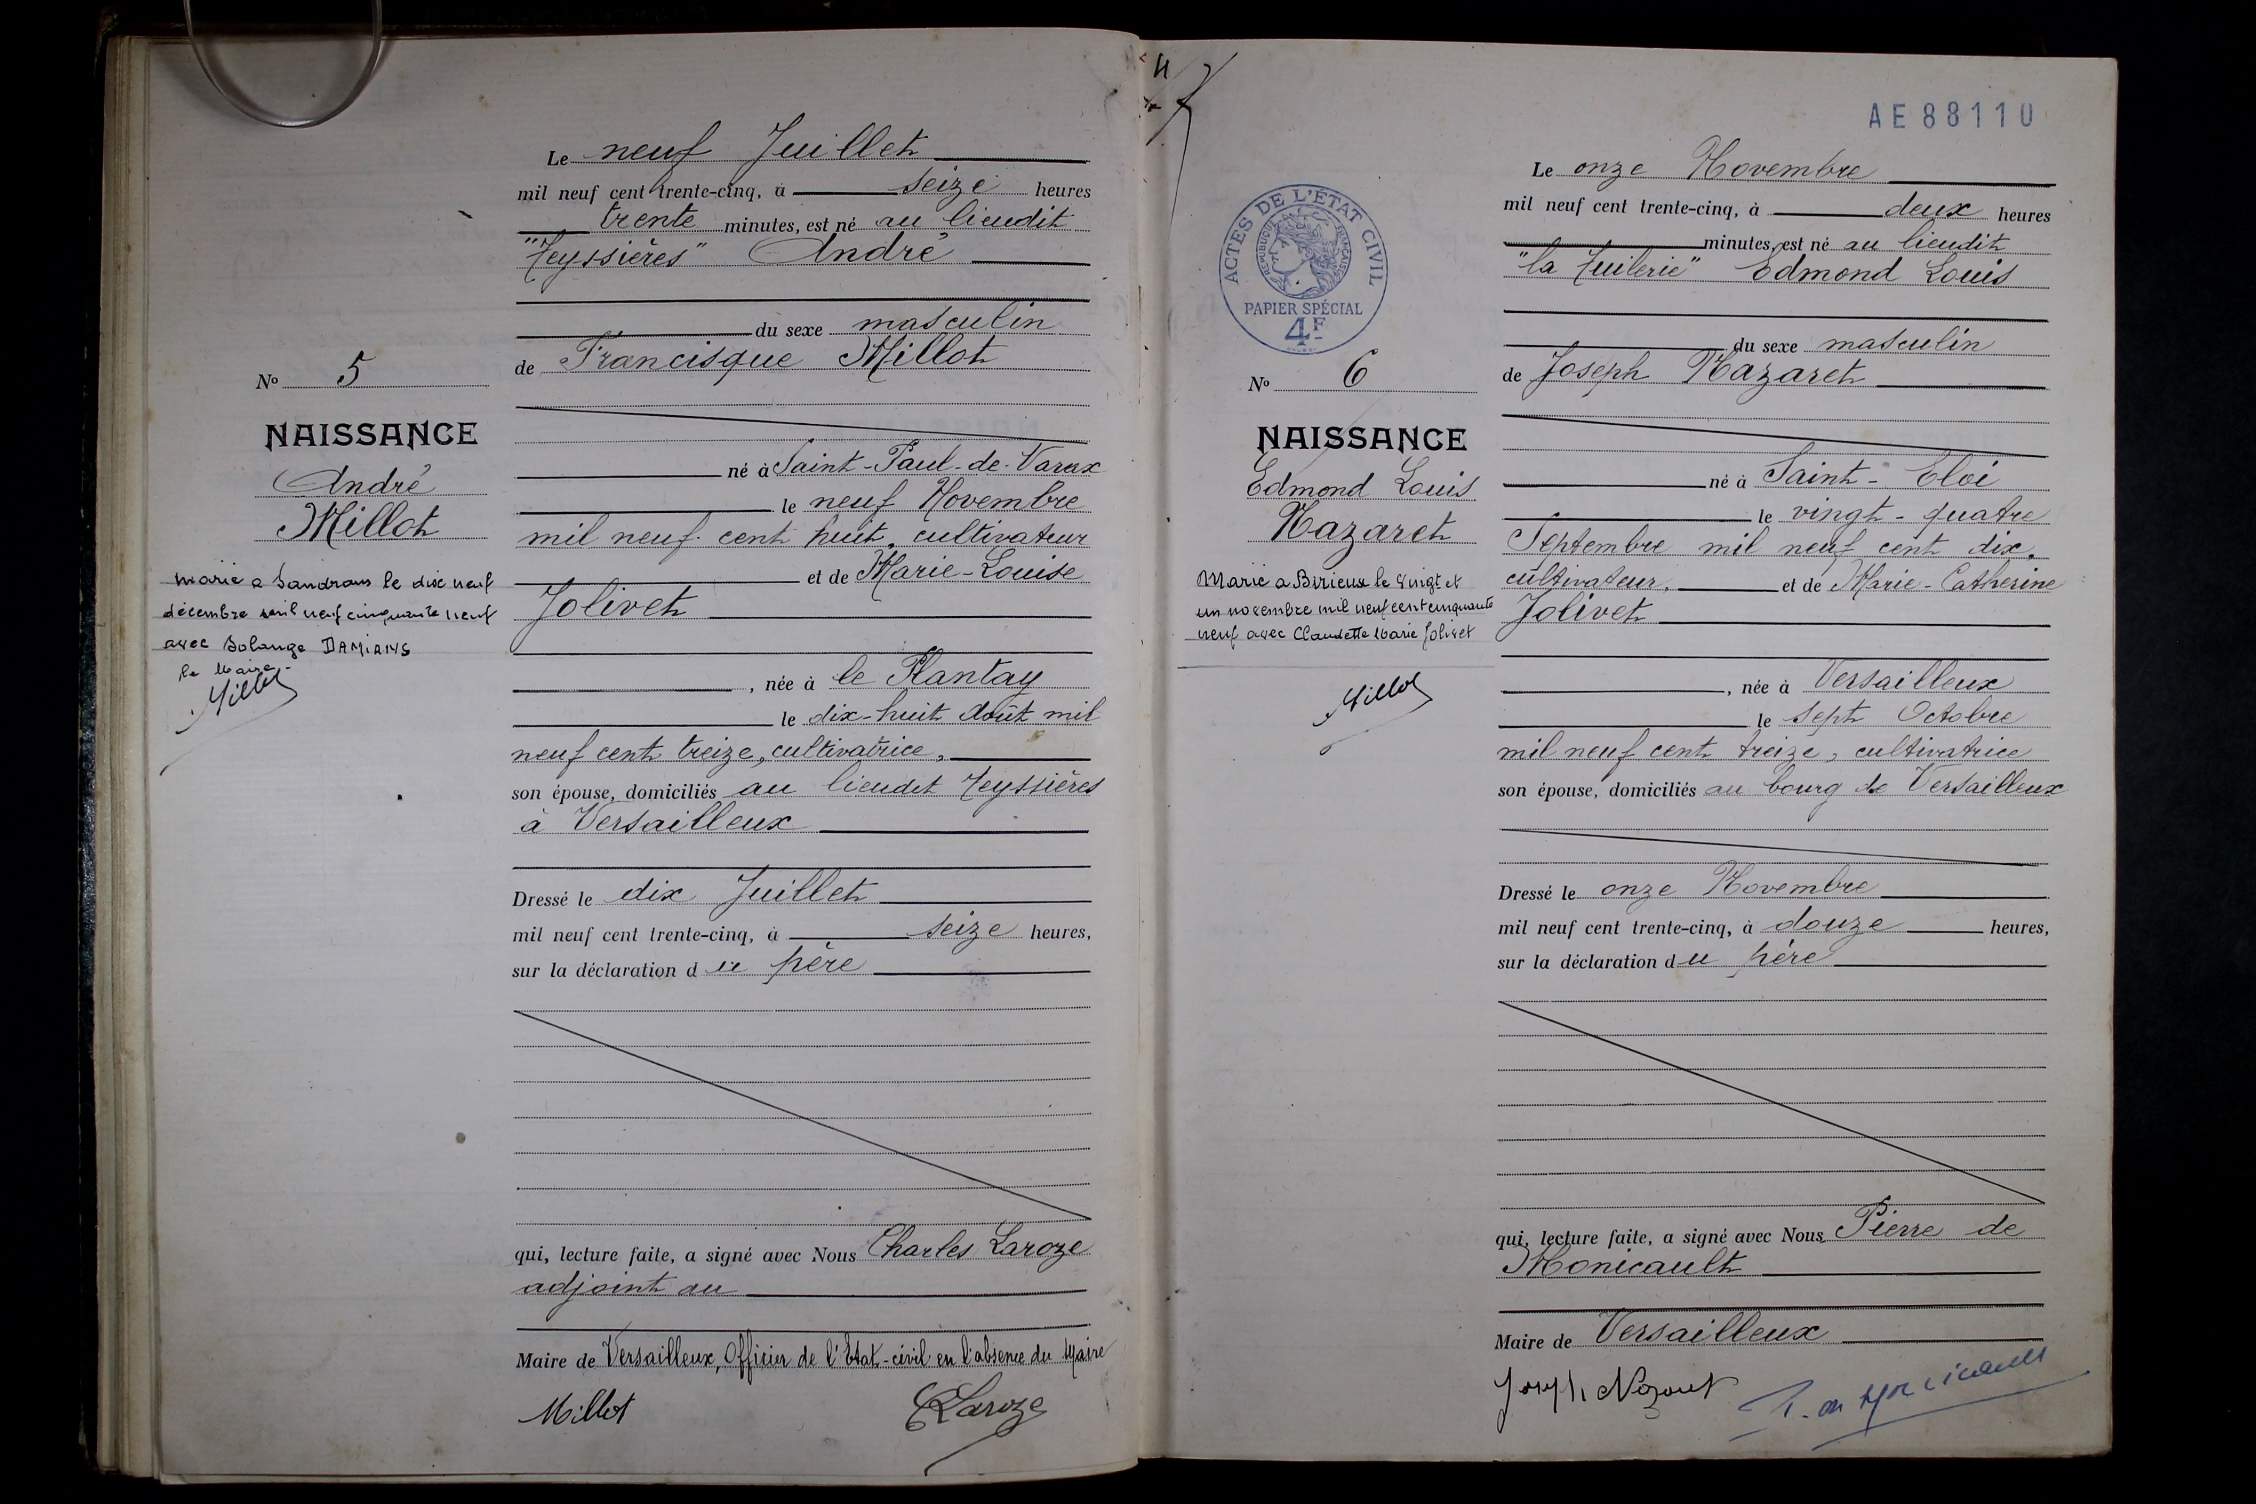 Le neuf Juillet
mil neuf cent trente-cinq, à seize heures
trente minutes, est né au lieudit
"Teyssières" André
du sexe masculin
de Francisque Millot
né à Saint-Paul-de-Varax
le neuf Novembre
mil neuf cent huit, cultivateur
et de Marie-Louise
Jolivet
, née à le Plantay
le dix-huit Août mil
neuf cent treize, cultivatrice,
son épouse, domiciliés au lieudit Teyssières
à Versailleux
Dressé le dix Juillet
mil neuf cent trente-cinq, à seize heures,
sur la déclaration du père
qui, lecture faite, a signé avec Nous Charles Laroze
adjoint au
Maire de Versailleux, Officier de l'Etat-civil en l'absence du Maire
Millot CLaroze
No 5
NAISSANCE
André
Millot
marié a Sandrans le dix neuf
décembre mil neuf cinquante neuf
avec Solange DAMIANS
le Maire
Millot
4
AE88110
ACTES DE L'ÉTAT CIVIL
RÉPUBLIQUE FRANÇAISE
PAPIER SPÉCIAL
4F
No 6
NAISSANCE
Edmond Louis
Nazaret
Marié a Birieux le vingt et
un novembre mil neuf cent cinquante
neuf avec Claudette Marie Jolivet
Millot
Le onze Novembre
mil neuf cent trente-cinq, à deux heures
minutes, est né au lieudit
"la Tuilerie" Edmond Louis
du sexe masculin
de Joseph Nazaret
né à Saint-Eloi
le vingt-quatre
Septembre mil neuf cent dix,
cultivateur, et de Marie-Catherine
Jolivet
, née à Versailleux
le sept Octobre
mil neuf cent treize, cultivatrice
son épouse, domiciliés au bourg de Versailleux
Dressé le onze Novembre
mil neuf cent trente-cinq, à douze heures,
sur la déclaration du père
qui, lecture faite, a signé avec Nous Pierre de
Monicault
Maire de Versailleux
Joseph Nazaret P. de Monicault